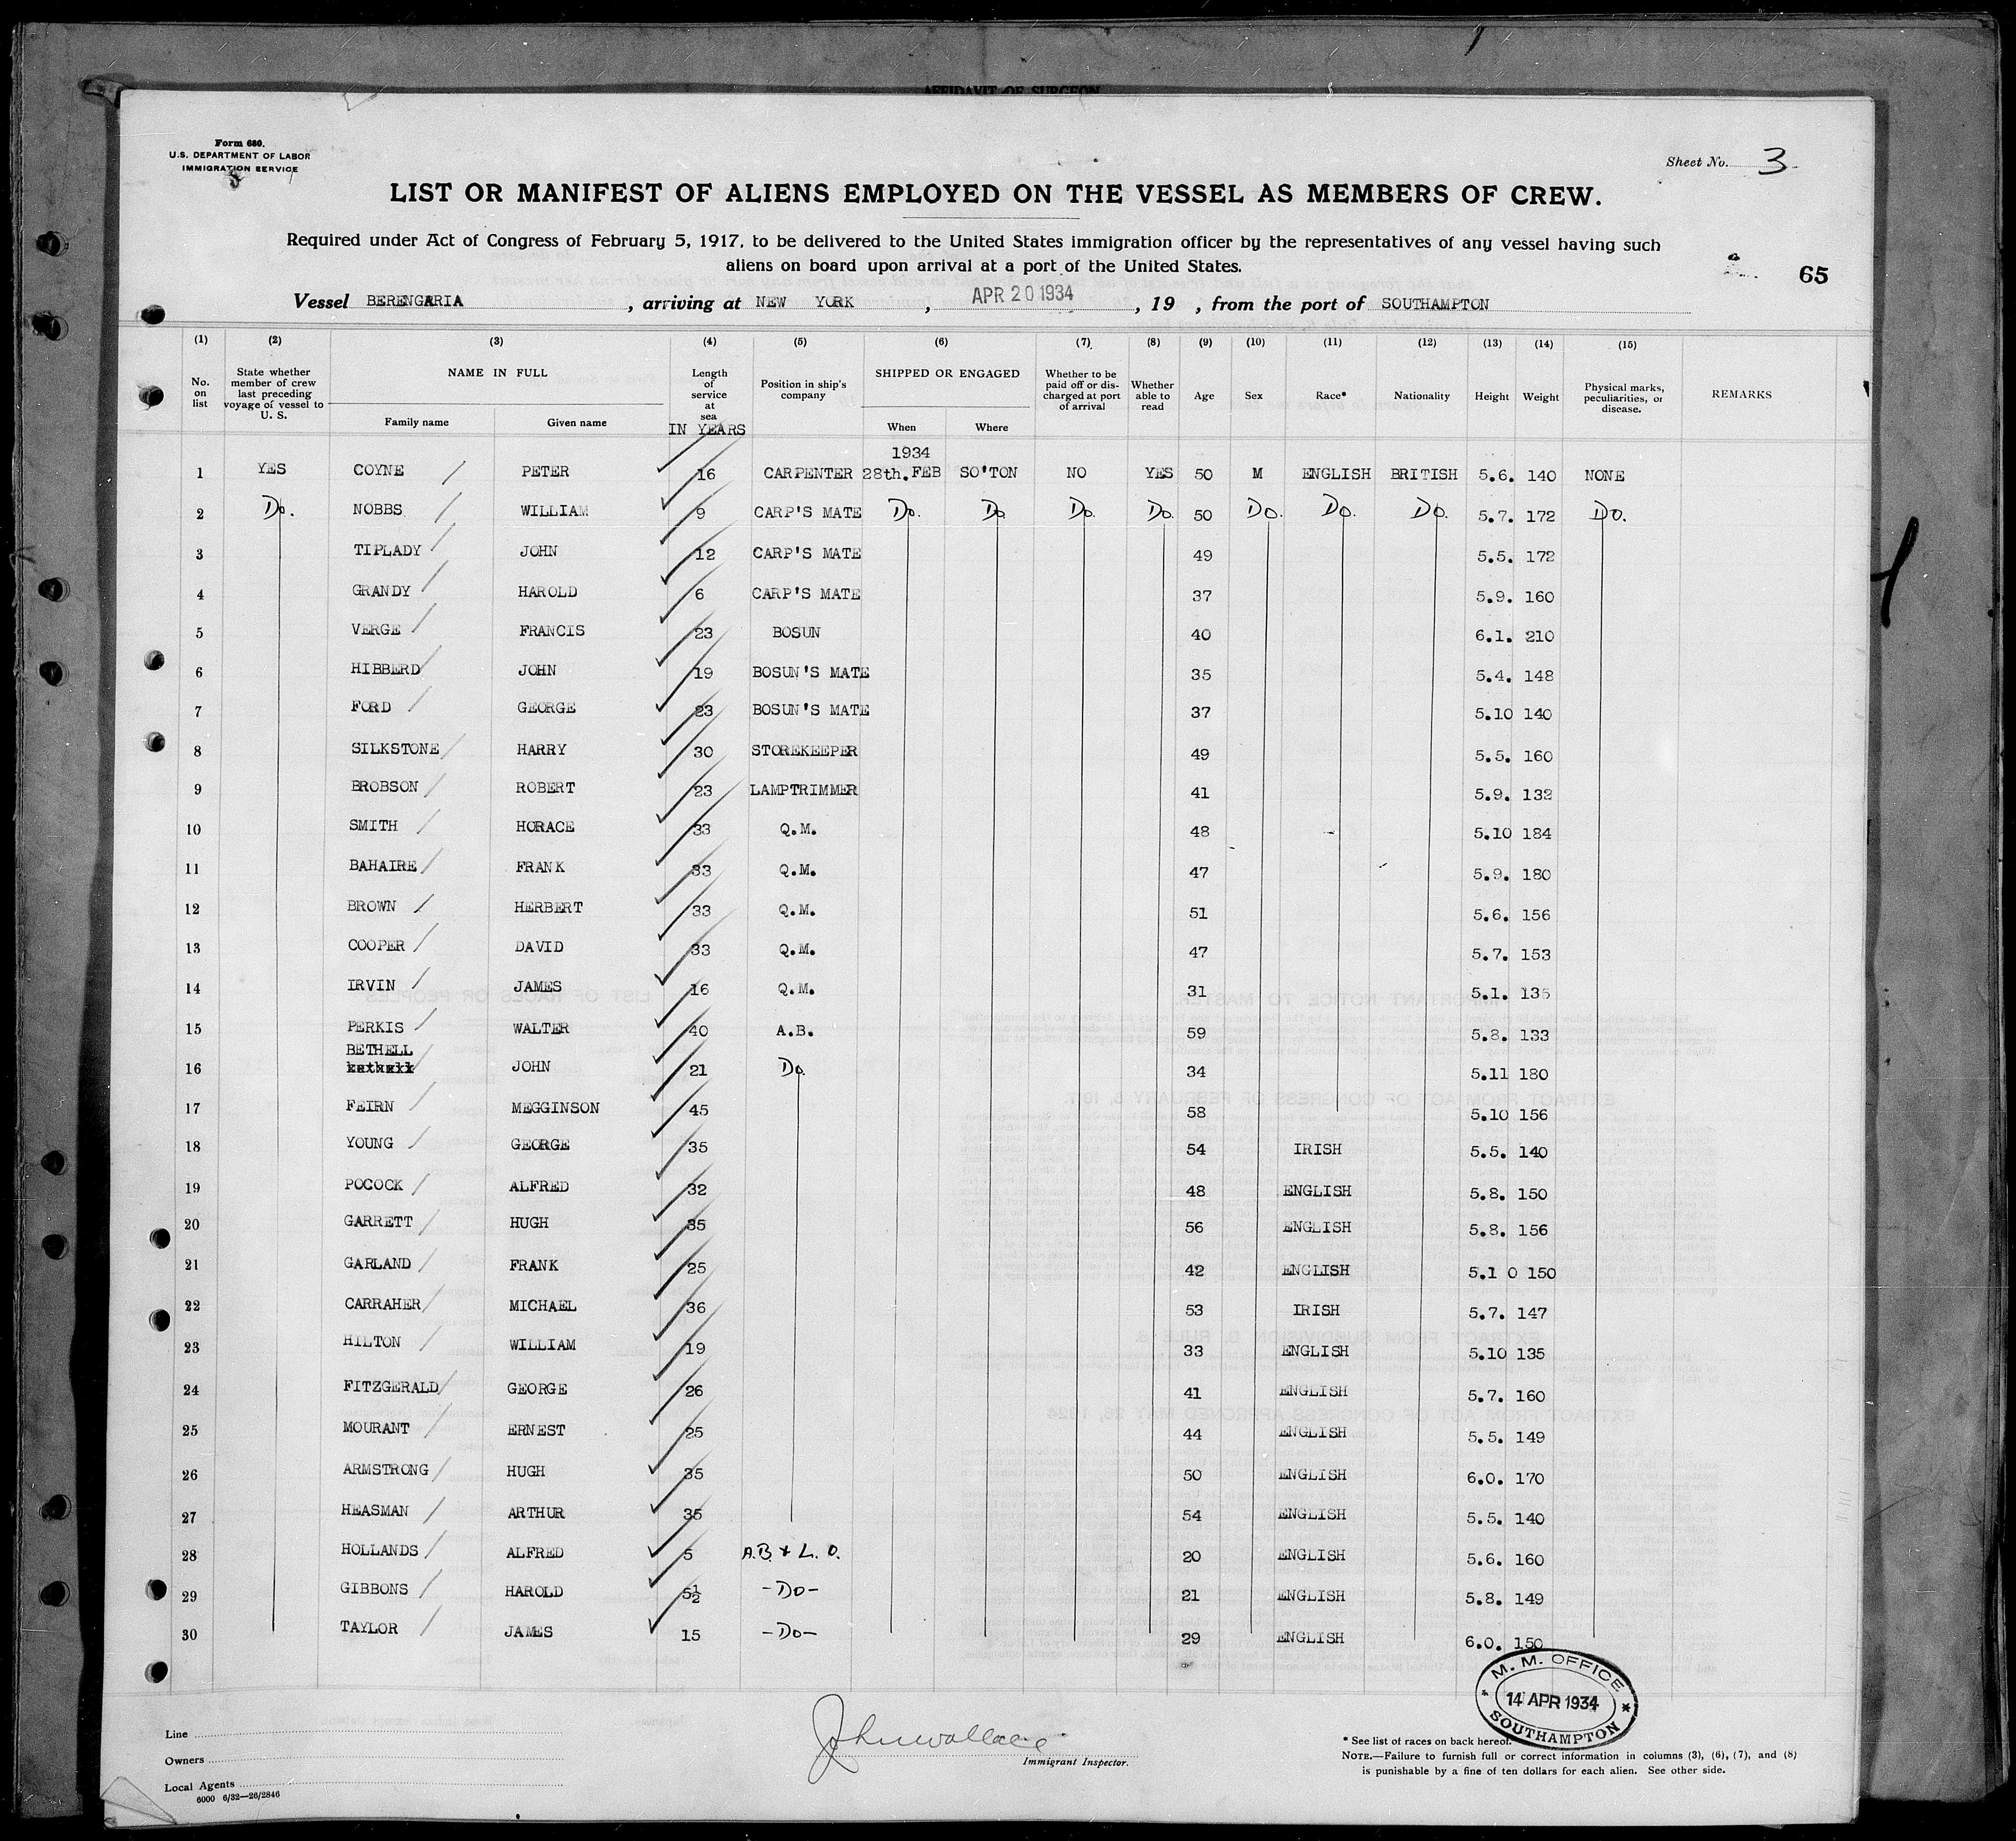 AFFIDAVIT OF SURGEON
Form 680.
U.S. DEPARTMENT OF LABOR
IMMIGRATION SERVICE
Sheet No. 3
LIST OR MANIFEST OF ALIENS EMPLOYED ON THE VESSEL AS MEMBERS OF CREW.
Required under Act of Congress of February 5, 1917, to be delivered to the United States immigration officer by the representatives of any vessel having such
aliens on board upon arrival at a port of the United States.
65
Vessel BERENGARIA, arriving at NEW YORK, APR 20 1934, 19 , from the port of SOUTHAMPTON
(1) (2) (3) (4) (5) (6) (7) (8) (9) (10) (11) (12) (13) (14) (15)
No. on list State whether member of crew last preceding voyage of vessel to U. S. NAME IN FULL Family name Given name Length of service at sea IN YEARS Position in ship's company SHIPPED OR ENGAGED When Where Whether to be paid off or discharged at port of arrival Whether able to read Age Sex Race* Nationality Height Weight Physical marks, peculiarities, or disease. REMARKS
1934
1 YES COYNE PETER 16 CARPENTER 28th.FEB SO'TON NO YES 50 M ENGLISH BRITISH 5.6. 140 NONE
2 Do. NOBBS WILLIAM 9 CARP'S MATE Do. Do Do. Do. 50 Do. Do. Do. 5.7. 172 Do.
3 TIPLADY JOHN 12 CARP'S MATE 49 5.5. 172
4 GRANDY HAROLD 6 CARP'S MATE 37 5.9. 160
5 VERGE FRANCIS 23 BOSUN 40 6.1. 210
6 HIBBERD JOHN 19 BOSUN'S MATE 35 5.4. 148
7 FORD GEORGE 23 BOSUN'S MATE 37 5.10 140
8 SILKSTONE HARRY 30 STOREKEEPER 49 5.5. 160
9 BROBSON ROBERT 23 LAMPTRIMMER 41 5.9. 132
10 SMITH HORACE 33 Q.M. 48 5.10 184
11 BAHAIRE FRANK 33 Q.M. 47 5.9. 180
12 BROWN HERBERT 33 Q.M. 51 5.6. 156
13 COOPER DAVID 33 Q.M. 47 5.7. 153
14 IRVIN JAMES 16 Q.M. 31 5.1. 135
15 PERKIS WALTER 40 A.B. 59 5.8. 133
16 BETHELL JOHN 21 Do 34 5.11 180
17 FEIRN MEGGINSON 45 58 5.10 156
18 YOUNG GEORGE 35 54 IRISH 5.5. 140
19 POCOCK ALFRED 32 48 ENGLISH 5.8. 150
20 GARRETT HUGH 35 56 ENGLISH 5.8. 156
21 GARLAND FRANK 25 42 ENGLISH 5.1 0 150
22 CARRAHER MICHAEL 36 53 IRISH 5.7. 147
23 HILTON WILLIAM 19 33 ENGLISH 5.10 135
24 FITZGERALD GEORGE 26 41 ENGLISH 5.7. 160
25 MOURANT ERNEST 25 44 ENGLISH 5.5. 149
26 ARMSTRONG HUGH 35 50 ENGLISH 6.0. 170
27 HEASMAN ARTHUR 35 54 ENGLISH 5.5. 140
28 HOLLANDS ALFRED 5 A.B. + L. O. 20 ENGLISH 5.6. 160
29 GIBBONS HAROLD 5½ -Do- 21 ENGLISH 5.8. 149
30 TAYLOR JAMES 15 -Do- 29 ENGLISH 6.0. 150
M. M. OFFICE
14 APR 1934
SOUTHAMPTON
Line
Owners
Local Agents
6000 6/32—26/2846
John Wallace
Immigrant Inspector.
* See list of races on back hereof.
NOTE.—Failure to furnish full or correct information in columns (3), (6), (7), and (8)
is punishable by a fine of ten dollars for each alien. See other side.